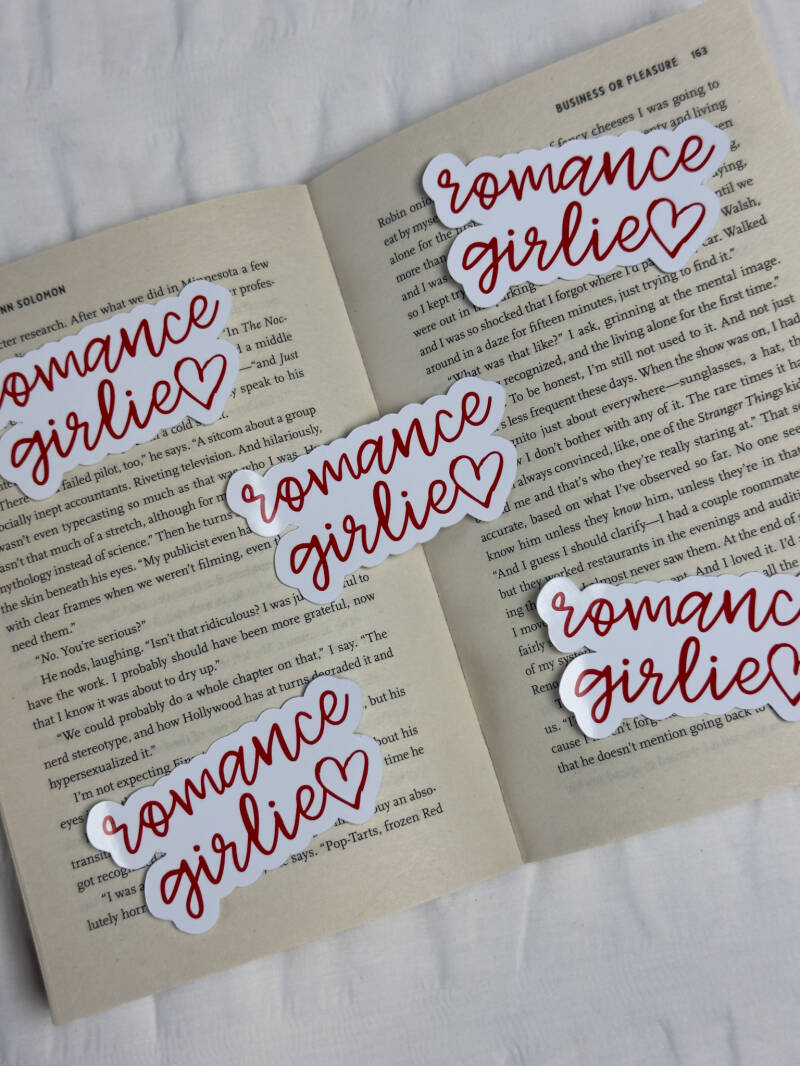 NN SOLOMON
cter research. After what we did in Minnesota a few
r profes-
"In The Noc-
d a middle
—"and Just
y speak to his
t a cold
There failed pilot, too," he says. "A sitcom about a group
ocially inept accountants. Riveting television. And hilariously,
wasn't even typecasting so much as that was who I was. H
asn't that much of a stretch, although for m
mythology instead of science." Then he turns
the skin beneath his eyes. "My publicist even ha
with clear frames when we weren't filming, even
need them."
"No. You're serious?"
He nods, laughing. "Isn't that ridiculous? I was ju ul to
have the work. I probably should have been more grateful, now
that I know it was about to dry up."
"We could probably do a whole chapter on that," I say. "The
nerd stereotype, and how Hollywood has at turns degraded it and
hypersexualized it."
I'm not expecting Fin , but his
eyes bout his
transiti time he
got recogn
"I was a buy an abso-
lutely horr says. "Pop-Tarts, frozen Red
romance
girlie
romance
girlie
romance
girlie
BUSINESS OR PLEASURE 163
f fancy cheeses I was going to
Robin onio enty and living
eat by myse
alone for the aying,
more than ntil we
and I was Walsh,
so I kept tr ar. Walked
were out in parking find it."
and I was so shocked that I forgot where I'd p
around in a daze for fifteen minutes, just trying to
"What was that like?" I ask, grinning at the mental image.
recognized, and the living alone for the first time."
To be honest, I'm still not used to it. And not just
s less frequent these days. When the show was on, I had
nito just about everywhere—sunglasses, a hat, th
I don't bother with any of it. The rare times it ha
always convinced, like, one of the Stranger Things kid
d me and that's who they're really staring at." That s
accurate, based on what I've observed so far. No one see
know him unless they know him, unless they're in that
"And I guess I should clarify—I had a couple roommate
but they worked restaurants in the evenings and auditi
ing th almost never saw them. At the end of
I move ent. And I loved it. I'd
fairly all the
of my syst
Reno
us. "I'
cause I n't forg
that he doesn't mention going back to
romance
girlie
romanc
girlie